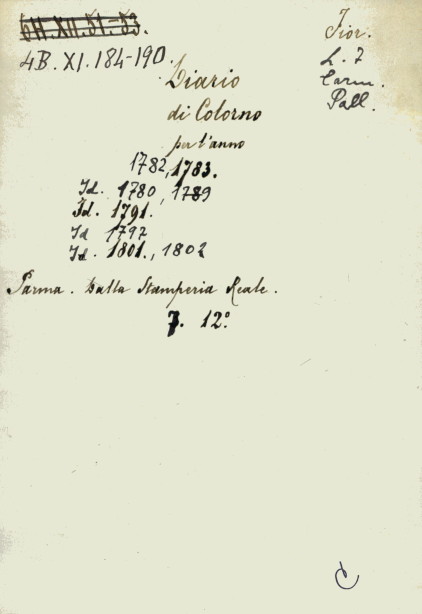 6H.XII.51.-53.
4B.XI.184-190.
Fior.
L. 7
Carm.
Pall.
Diario
di Colorno
per l'anno
1782, 1783.
Id. 1780, 1789
Id. 1791.
Id 1797
Id. 1801., 1802
Parma. Dalla Stamperia Reale.
7. 12º.